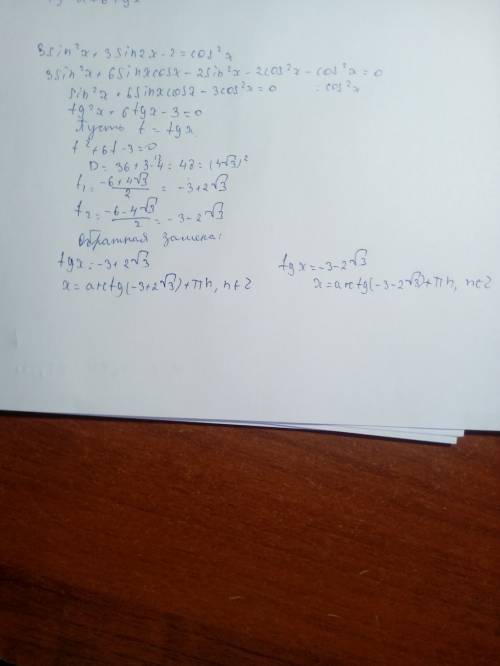 3sin²x + 3sin2x - 2 = cos²x
3sin²x + 6sinxcosx - 2sin²x - 2cos²x - cos²x = 0
sin²x + 6sinxcosx - 3cos²x = 0 : cos²x
tg²x + 6tgx - 3 = 0
Пусть t = tgx
t² + 6t - 3 = 0
D = 36 + 3·4 = 48 = (4√3)²
t₁ = (-6+4√3)/2 = -3+2√3
t₂ = (-6-4√3)/2 = -3-2√3
Обратная замена:
tgx = -3+2√3 tgx = -3-2√3
x = arctg(-3+2√3)+πn, n∈Z x = arctg(-3-2√3)+πn, n∈Z